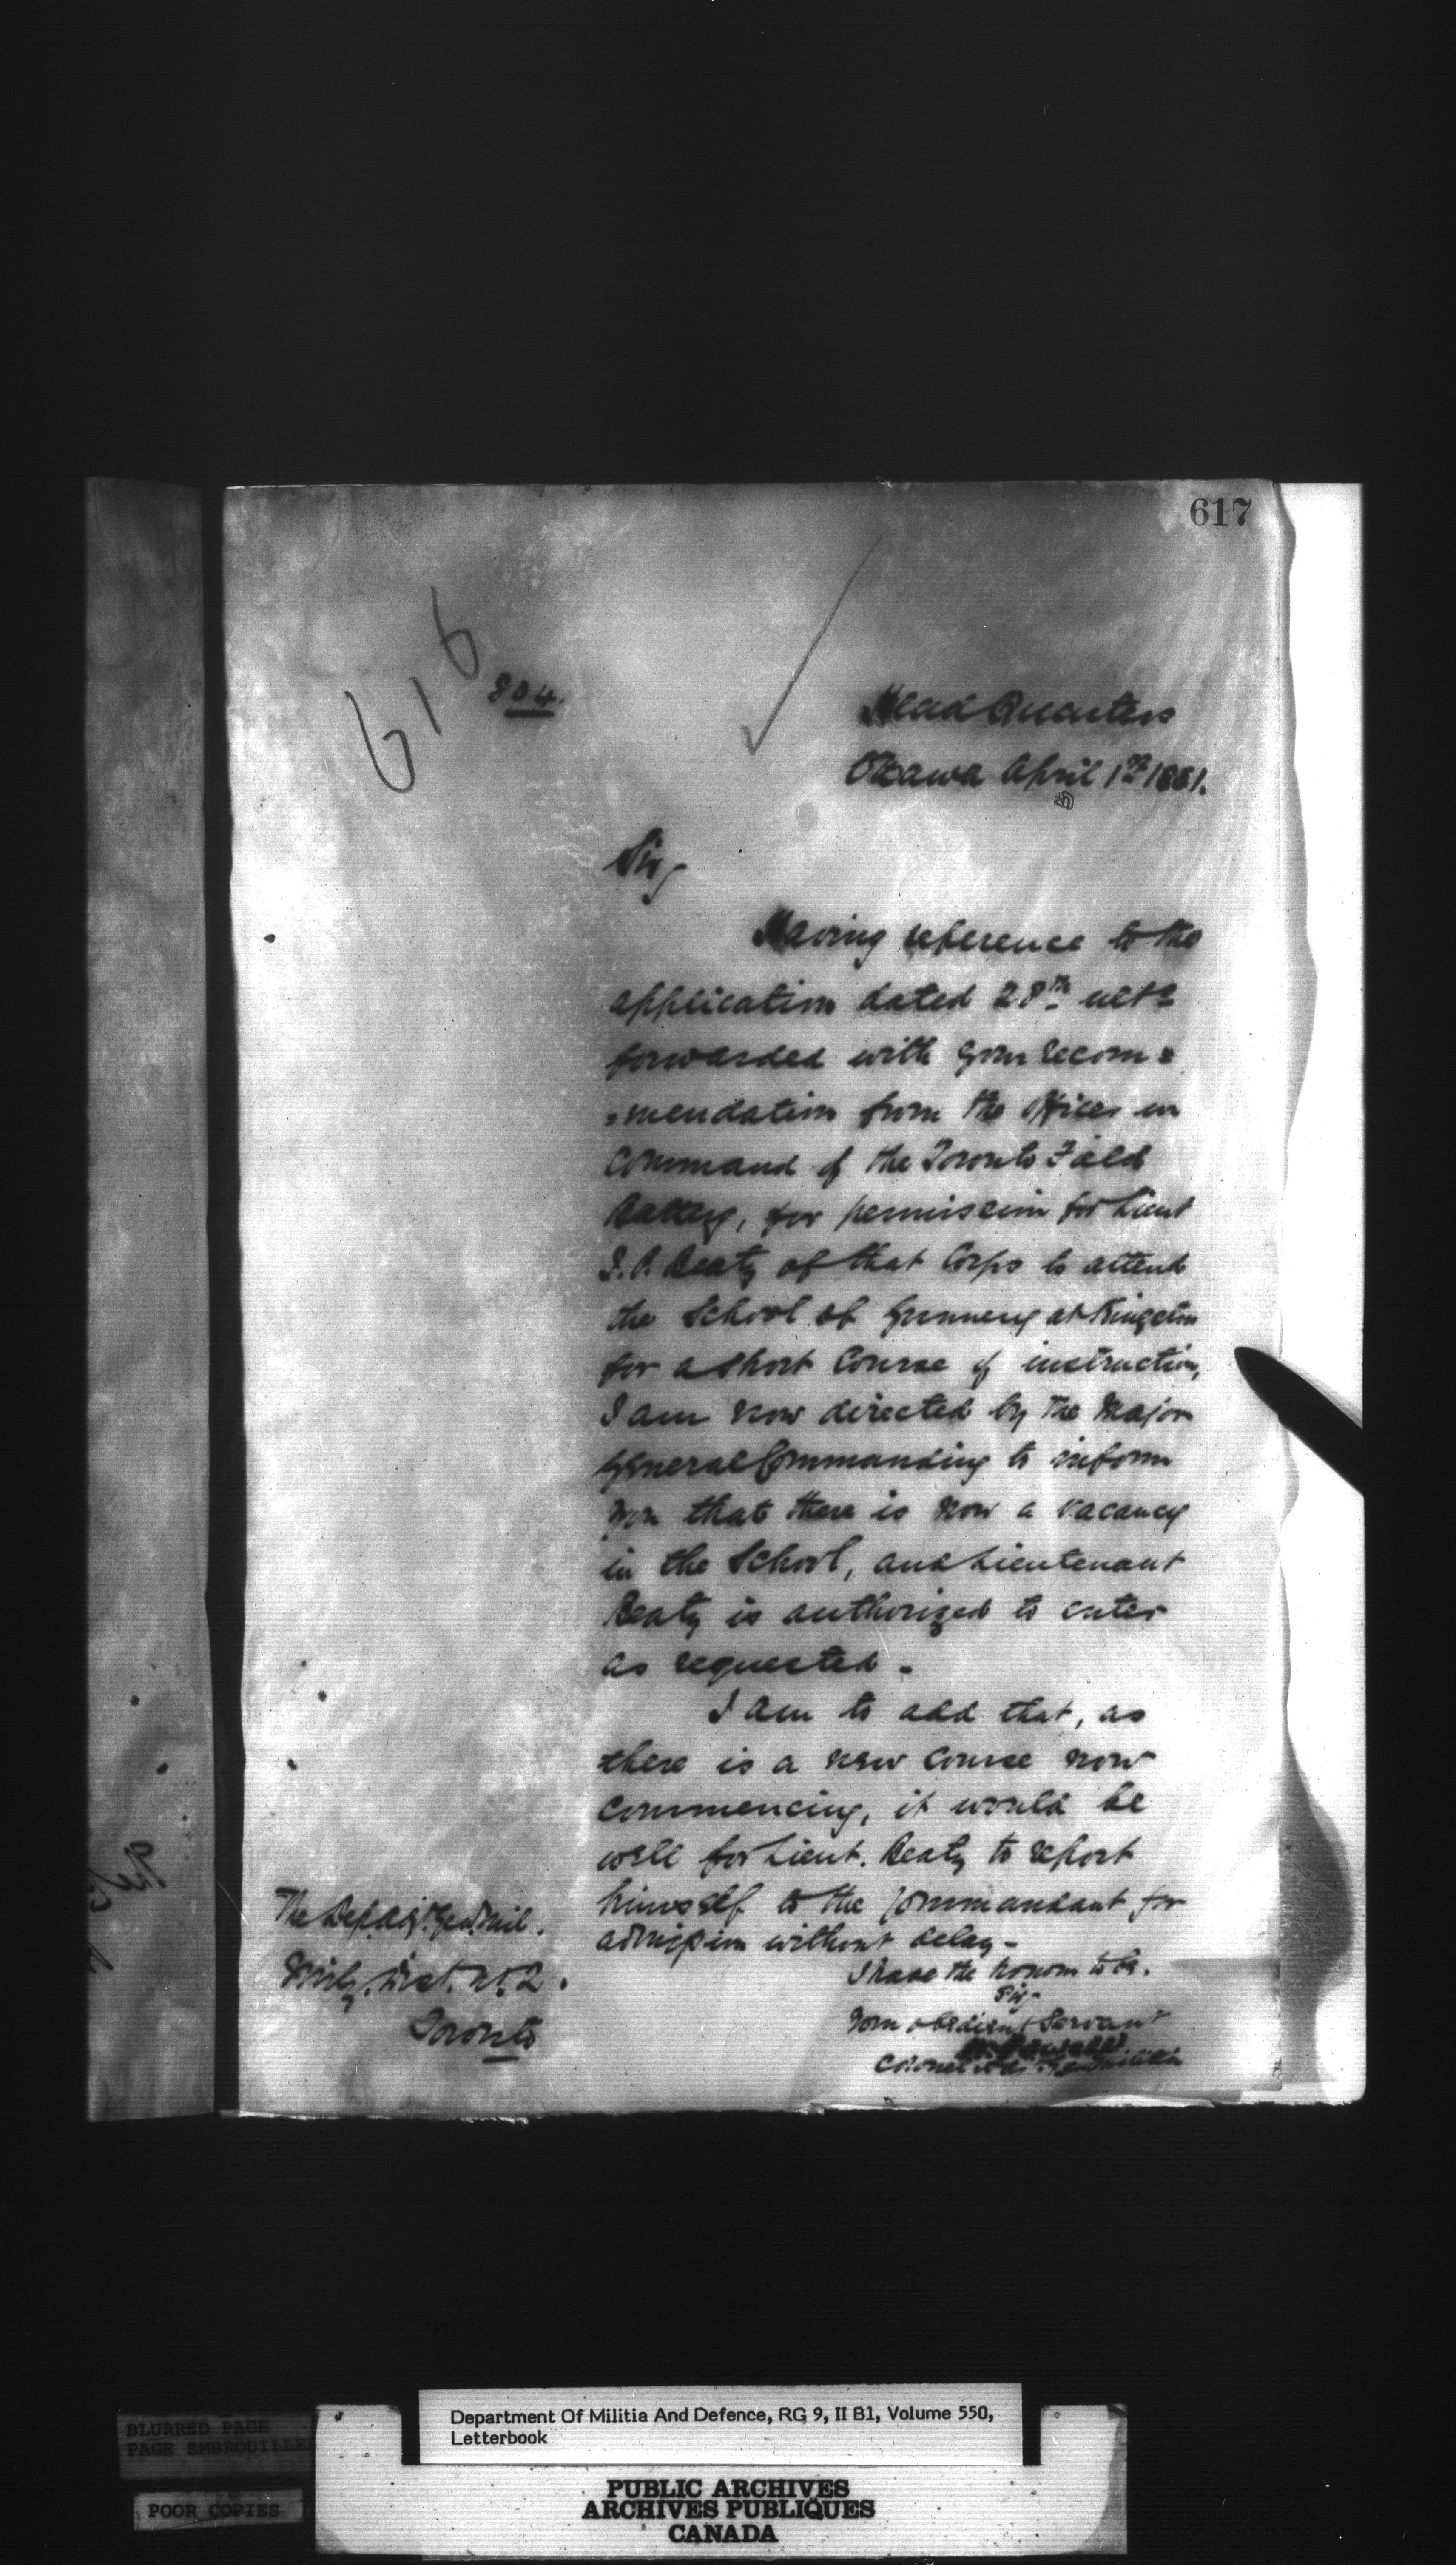 617
616
804.
Head Quarters
Ottawa April 1st 1881.
Sir,
Having reference to the
application dated 28th ulto
forwarded with your recom=
=mendation from the officer in
Command of the Toronto Field
Battery, for permission for Lieut
Beaty of that Corps to attend
the School of Gunnery at Kingston
for a short Course of instruction,
I am now directed by the Major
General Commanding to inform
you that there is now a vacancy
in the School, and Lieutenant
Beaty is authorized to enter
as requested.
I am to add that, as
there is a new Course now
commencing, it would be
well for Lieut. Beaty to report
himself to the Commandant for
admission without delay-
I have the honor to be.
Sir
Your obedient Servant
W. Powell
Colonel Militia
The Dep. Adj. Genl Mil.
Mily. Dist. No. 2.
Toronto
BLURRED PAGE
PAGE EMBROUILLE
POOR COPIES
Department Of Militia And Defence, RG 9, II B1, Volume 550,
Letterbook
PUBLIC ARCHIVES
ARCHIVES PUBLIQUES
CANADA